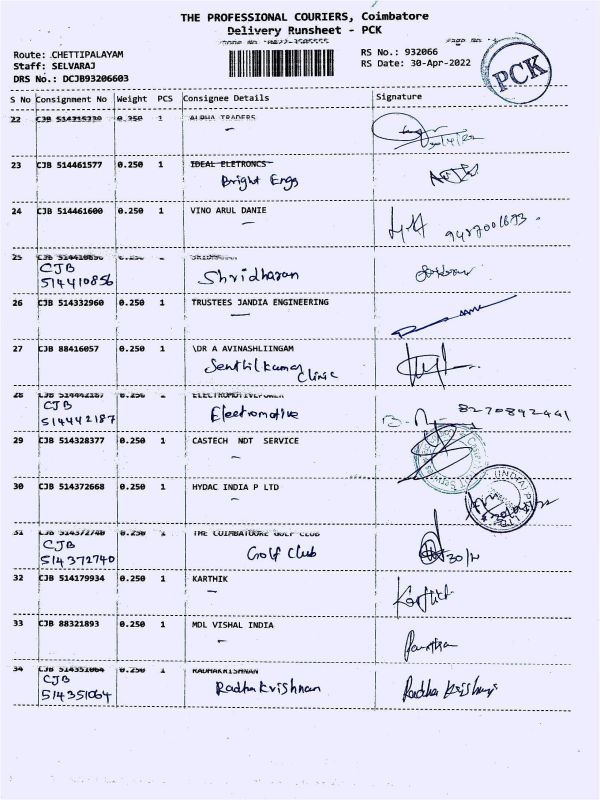 THE PROFESSIONAL COURIERS, Coimbatore
Delivery Runsheet - PCK
Route: CHETTIPALAYAM
Staff: SELVARAJ
DRS No.: DCJB93206603
RS No.: 932066
RS Date: 30-Apr-2022
PCK
S No Consignment No Weight PCS Consignee Details Signature
22 CJB 0.250 1 ALPHA TRADERS
23 CJB 514461577 0.250 1 IDEAL ELETRONCS
Bright Engs
24 CJB 514461600 0.250 1 VINO ARUL DANIE
25
CJB Shridharan
514410856
26 CJB 514332960 0.250 1 TRUSTEES JANDIA ENGINEERING
27 CJB 88416057 0.250 1 \DR A AVINASHLIINGAM
Senthilkumar
Clinic
28 CJB 514442187 0.250 ELECTROMOTIVEPOWER
CJB Electromotive 8270892441
514442187
29 CJB 514328377 0.250 1 CASTECH NDT SERVICE
30 CJB 514372668 0.250 1 HYDAC INDIA P LTD
31 CJB 514372740 0.250 1 THE COIMBATOORE GOLF CLUB
CJB Golf Club
514372740
32 CJB 514179934 0.250 1 KARTHIK
Karthik
33 CJB 88321893 0.250 1 MDL VISHAL INDIA
34 CJB 514351064 0.250 1 RADHAKRISHNAN
CJB Radha Krishnan
514351064